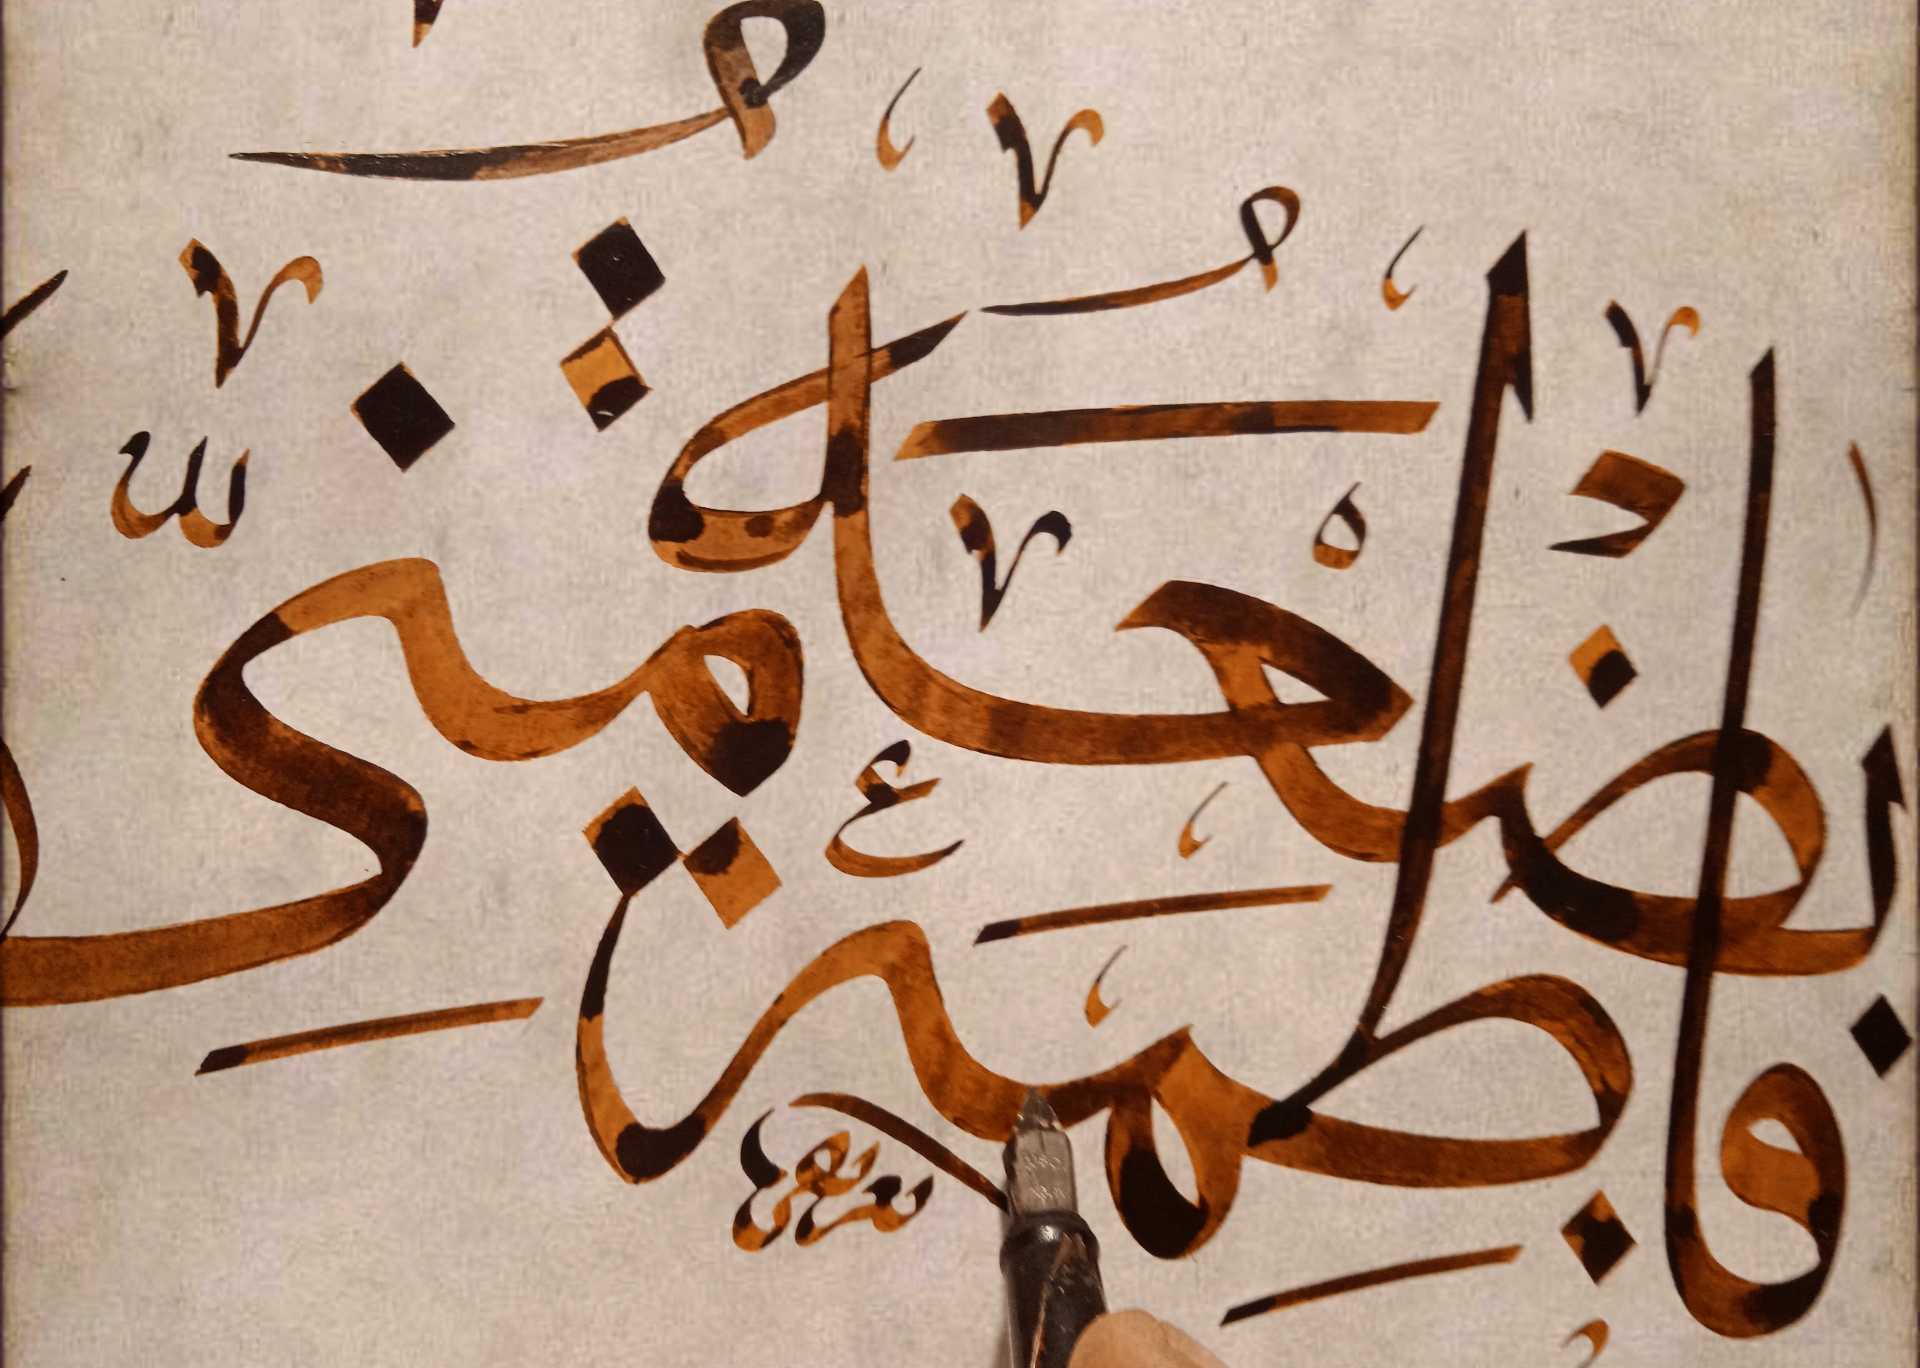 فاطمة بضعة مني